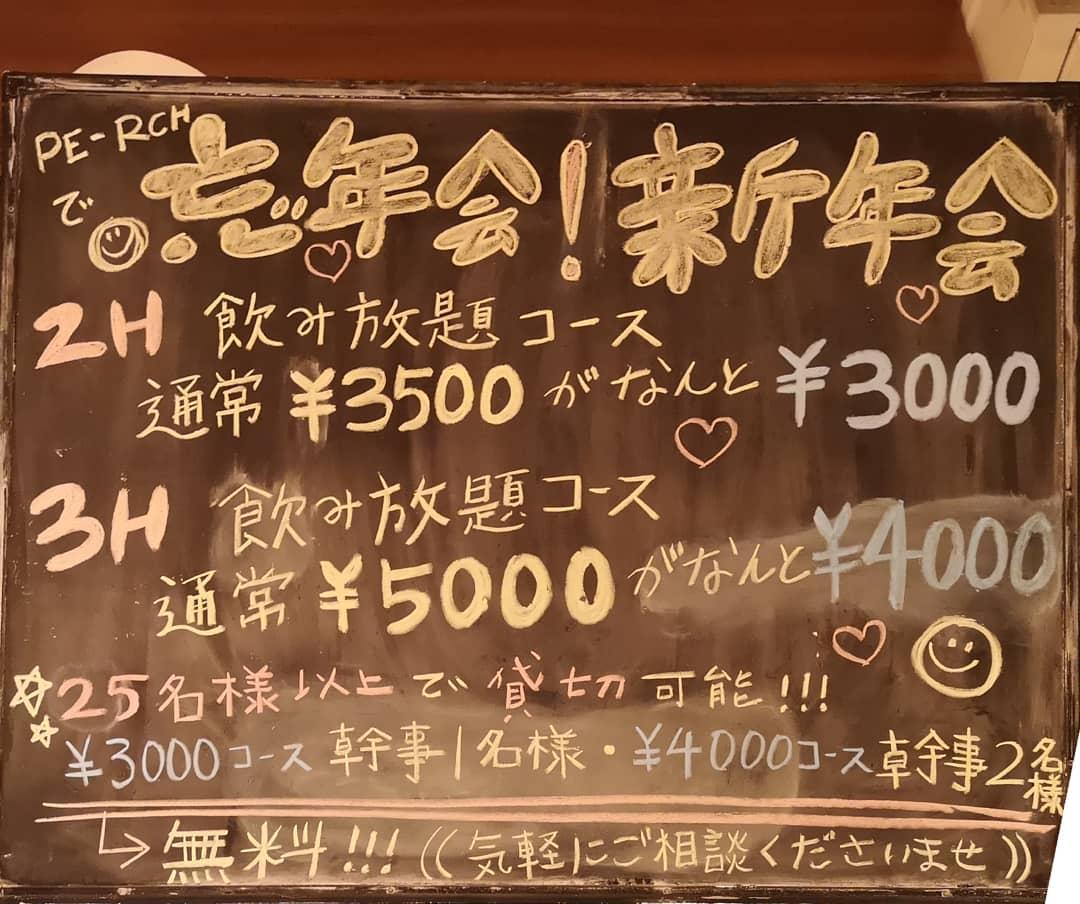 PE-RCH
で 忘年会!新年会
2H 飲み放題コース
通常 ¥3500 がなんと ¥3000
3H 飲み放題コース
通常 ¥5000 がなんと ¥4000
25名様以上で貸切可能!!!
¥3000コース 幹事1名様・¥4000コース幹事2名様
↳ 無料!!! ((気軽にご相談くださいませ))